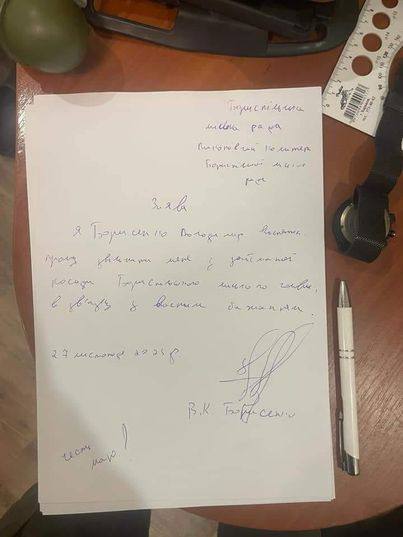 Бориспільська
міська рада
Виконавчий комітет
Бориспільської міської
ради
Заява
Я Борисенко Володимир
прошу звільнити мене з займаної
посади Бориспільського міського голови,
в зв'язку з власним бажанням.
27 листопада
В.К Борисенко
честь
маю!